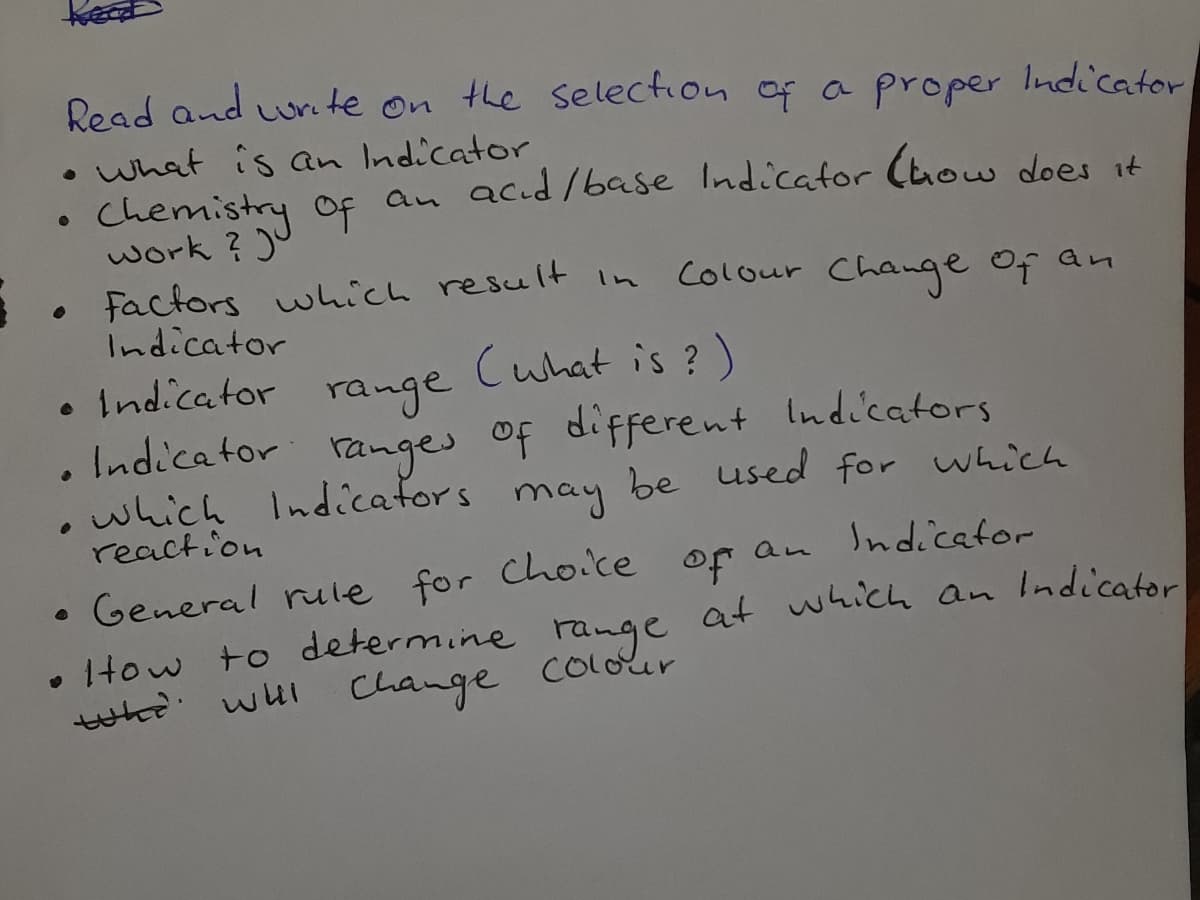 Read and write on the selection of a proper Indicator
• what is an Indicator
• Chemistry of an acid/base Indicator (how does it
work?)
• Factors which result in Colour Change of an
Indicator
• Indicator range (what is?)
• Indicator ranges of different Indicators
• which Indicators may be used for which
reaction
• General rule for Choice of an Indicator
• How to determine range at which an Indicator
will Change colour